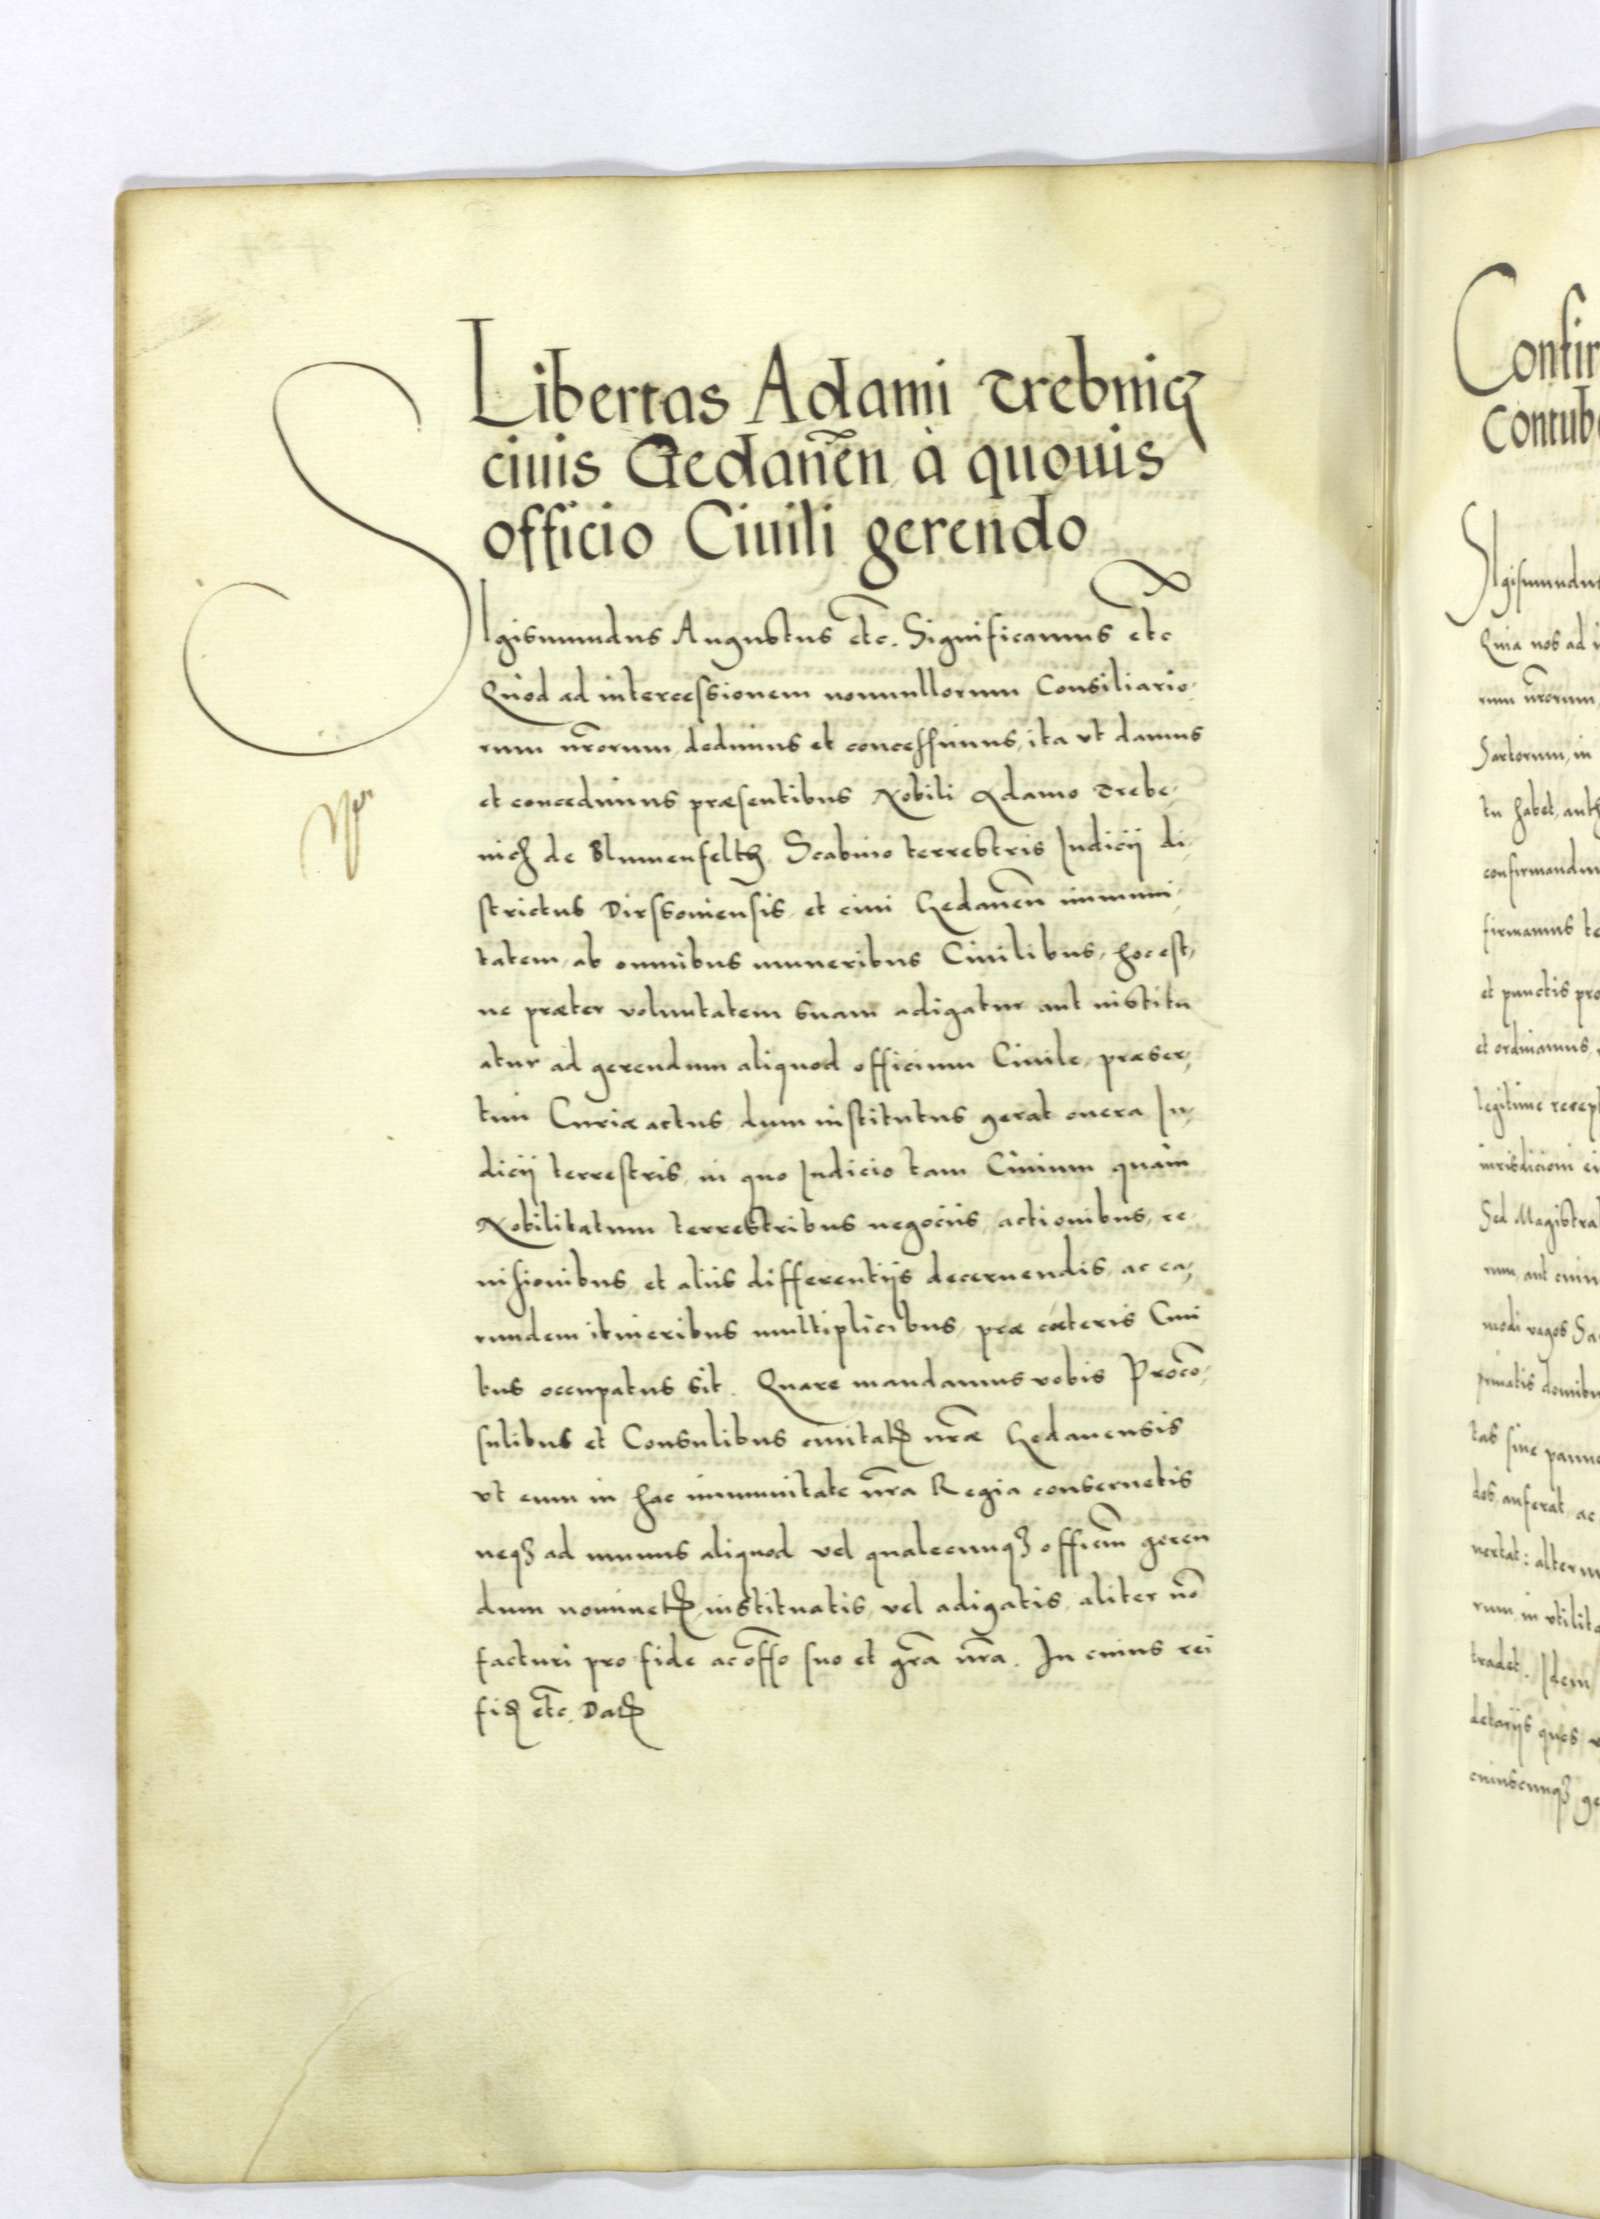 Libertas Adami Trebnicz
ciuis Gedanen̄ à quouis
officio Ciuili gerendo
SIgismundus Augustus etc̄. Significamus etc̄
Quod ad intercessionem nonnullorum Consiliario,
rum nr̄orum, dedimus et concessimus, ita vt damus
et concedimus præsentibus Nobili Adamo Trebe,
nicz de Blumenfeltz, Scabino terrestris Iudicij di,
strictus Dirssouiensis, et ciui Gedanen̄ immuni,
tatem, ab omnibus muneribus Ciuilibus, hoc est,
ne præter voluntatem suam adigatur aut institu
atur ad gerendum aliquod officium Ciuile, præser,
tim Curiæ actus, dum institutus gerat onera Iu,
dicij terrestris, in quo Iudicio tam Ciuium quàm
Nobilitatum terrestribus negocijs, actionibus, re
uisionibus, et alijs differentijs decernendis, ac ea,
rundem itineribus multiplicibus, præ cæteris Ciui
bus occupatus sit. Quare mandamus vobis Proco̅,
sulibus et Consulibus ciuitatꝭ nr̄æ Gedanensis
vt eum in hac immunitate nr̄a Regia conseruetis
neqꝫ ad munus aliquod vel qualecunqꝫ officiū̄ geren
dum nominetꝭ, instituatis, vel adigatis, aliter no̅
facturi pro fide ac off̄o suo et gr̄a nr̄a. In cuius rei
fidꝭ etc̄. Datꝭ
Confir
Contub
SIgismundus
Quia nos ad i
rum nr̄orum,
Sartorum, in
tu habet, auth
confirmandum
firmamus te
et punctis pro
et ordinamus,
legitime recept
iurisdicioni ei
Sed Magistrat
rum, aut cuiu
modi vagos Sa
priuatis domibu
tas siue panno
des, auferat, ac
uertat: alteram
rum, in vtilita
tradet. Idem
detarijs quos v
cuiuscunqꝫ ge